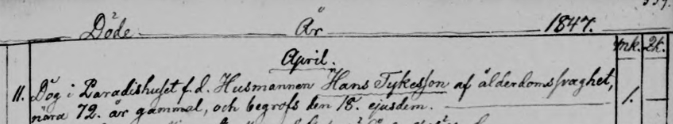 Döde År 1847.
April. mk. 2k.
11. Dög i Paradishuset f.d. Husmannen Hans Tykesson af ålderdomssvaghet,
nära 72. år gammal, och begrofs den 18. ejusdem. 1.